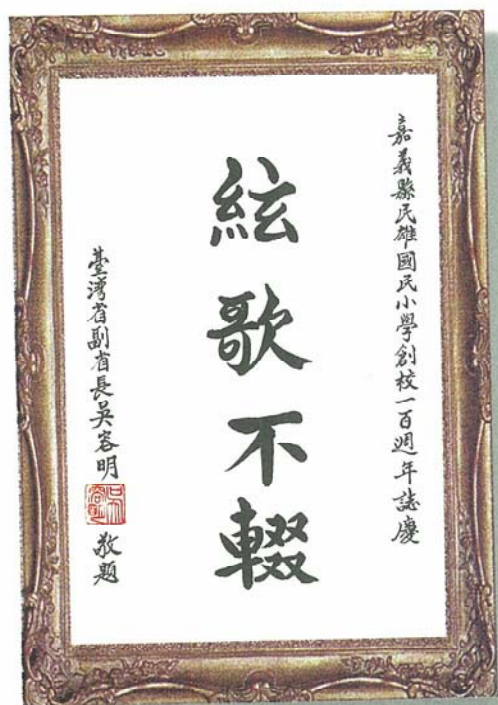 嘉義縣民雄國民小學創校一百週年誌慶
絃歌不輟
臺灣省副省長吳容明 敬題